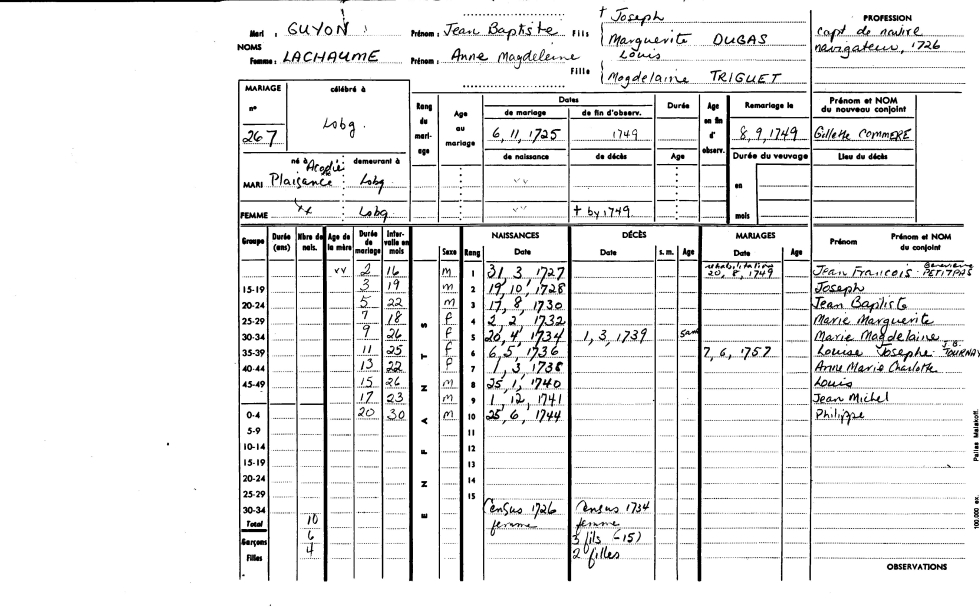 † Joseph
Mari : GUYON Prénom : Jean Baptiste Fils Marguerite DUGAS
NOMS Louis
Femme : LACHAUME Prénom : Anne Magdeleine Fille Magdelaine TRIGUET
PROFESSION
capt de navire
navigateur, 1726
MARIAGE célébré à Rang du mariage Age au mariage Dates Durée Age en fin d'observ. Remariage le Prénom et NOM du nouveau conjoint
n° de mariage de fin d'observ.
267 Lobg. 6, 11, 1725 1749 8, 9, 1749 Gillette COMMERE
né à demeurant à de naissance de décès Age Durée du veuvage Lieu du décès
Acadie
MARI Plaisance Lobg. vv en
FEMME Lobg. vv † by 1749 mois
Groupe Durée (ans) Nbre de nais. Age de la mère Durée de mariage Intervalle en mois Sexe Rang NAISSANCES Date DÉCÈS Date s. m. Age MARIAGES Date Age Prénom Prénom et NOM du conjoint
ENFANTS
rehabilitation Genevieve
vv 2 16 m 1 31, 3, 1727 20, 8, 1749 Jean Francois - PETITPAS
15-19 3 19 m 2 19, 10, 1728 Joseph
20-24 5 22 m 3 17, 8, 1730 Jean Baptiste
25-29 7 18 f 4 2, 2, 1732 Marie Marguerite
30-34 9 26 f 5 20, 4, 1734 1, 3, 1739 5an Marie Magdelaine
J.B.
35-39 11 25 f 6 6, 5, 1736 7, 6, 1757 Louise Josephe TOURNAY
40-44 13 22 f 7 1, 3, 1738 Anne Marie Charlotte
45-49 15 26 m 8 25, 1, 1740 Louis
17 23 m 9 1, 12, 1741 Jean Michel
0-4 20 30 m 10 25, 6, 1744 Philippe
5-9 11
10-14 12
15-19 13
20-24 14
25-29 15
30-34 Census 1726 Census 1734
Total 10 femme femme
Garçons 6 3 fils (-15)
Filles 4 2 filles
OBSERVATIONS
100,000 ex. Pallas Malakoff.